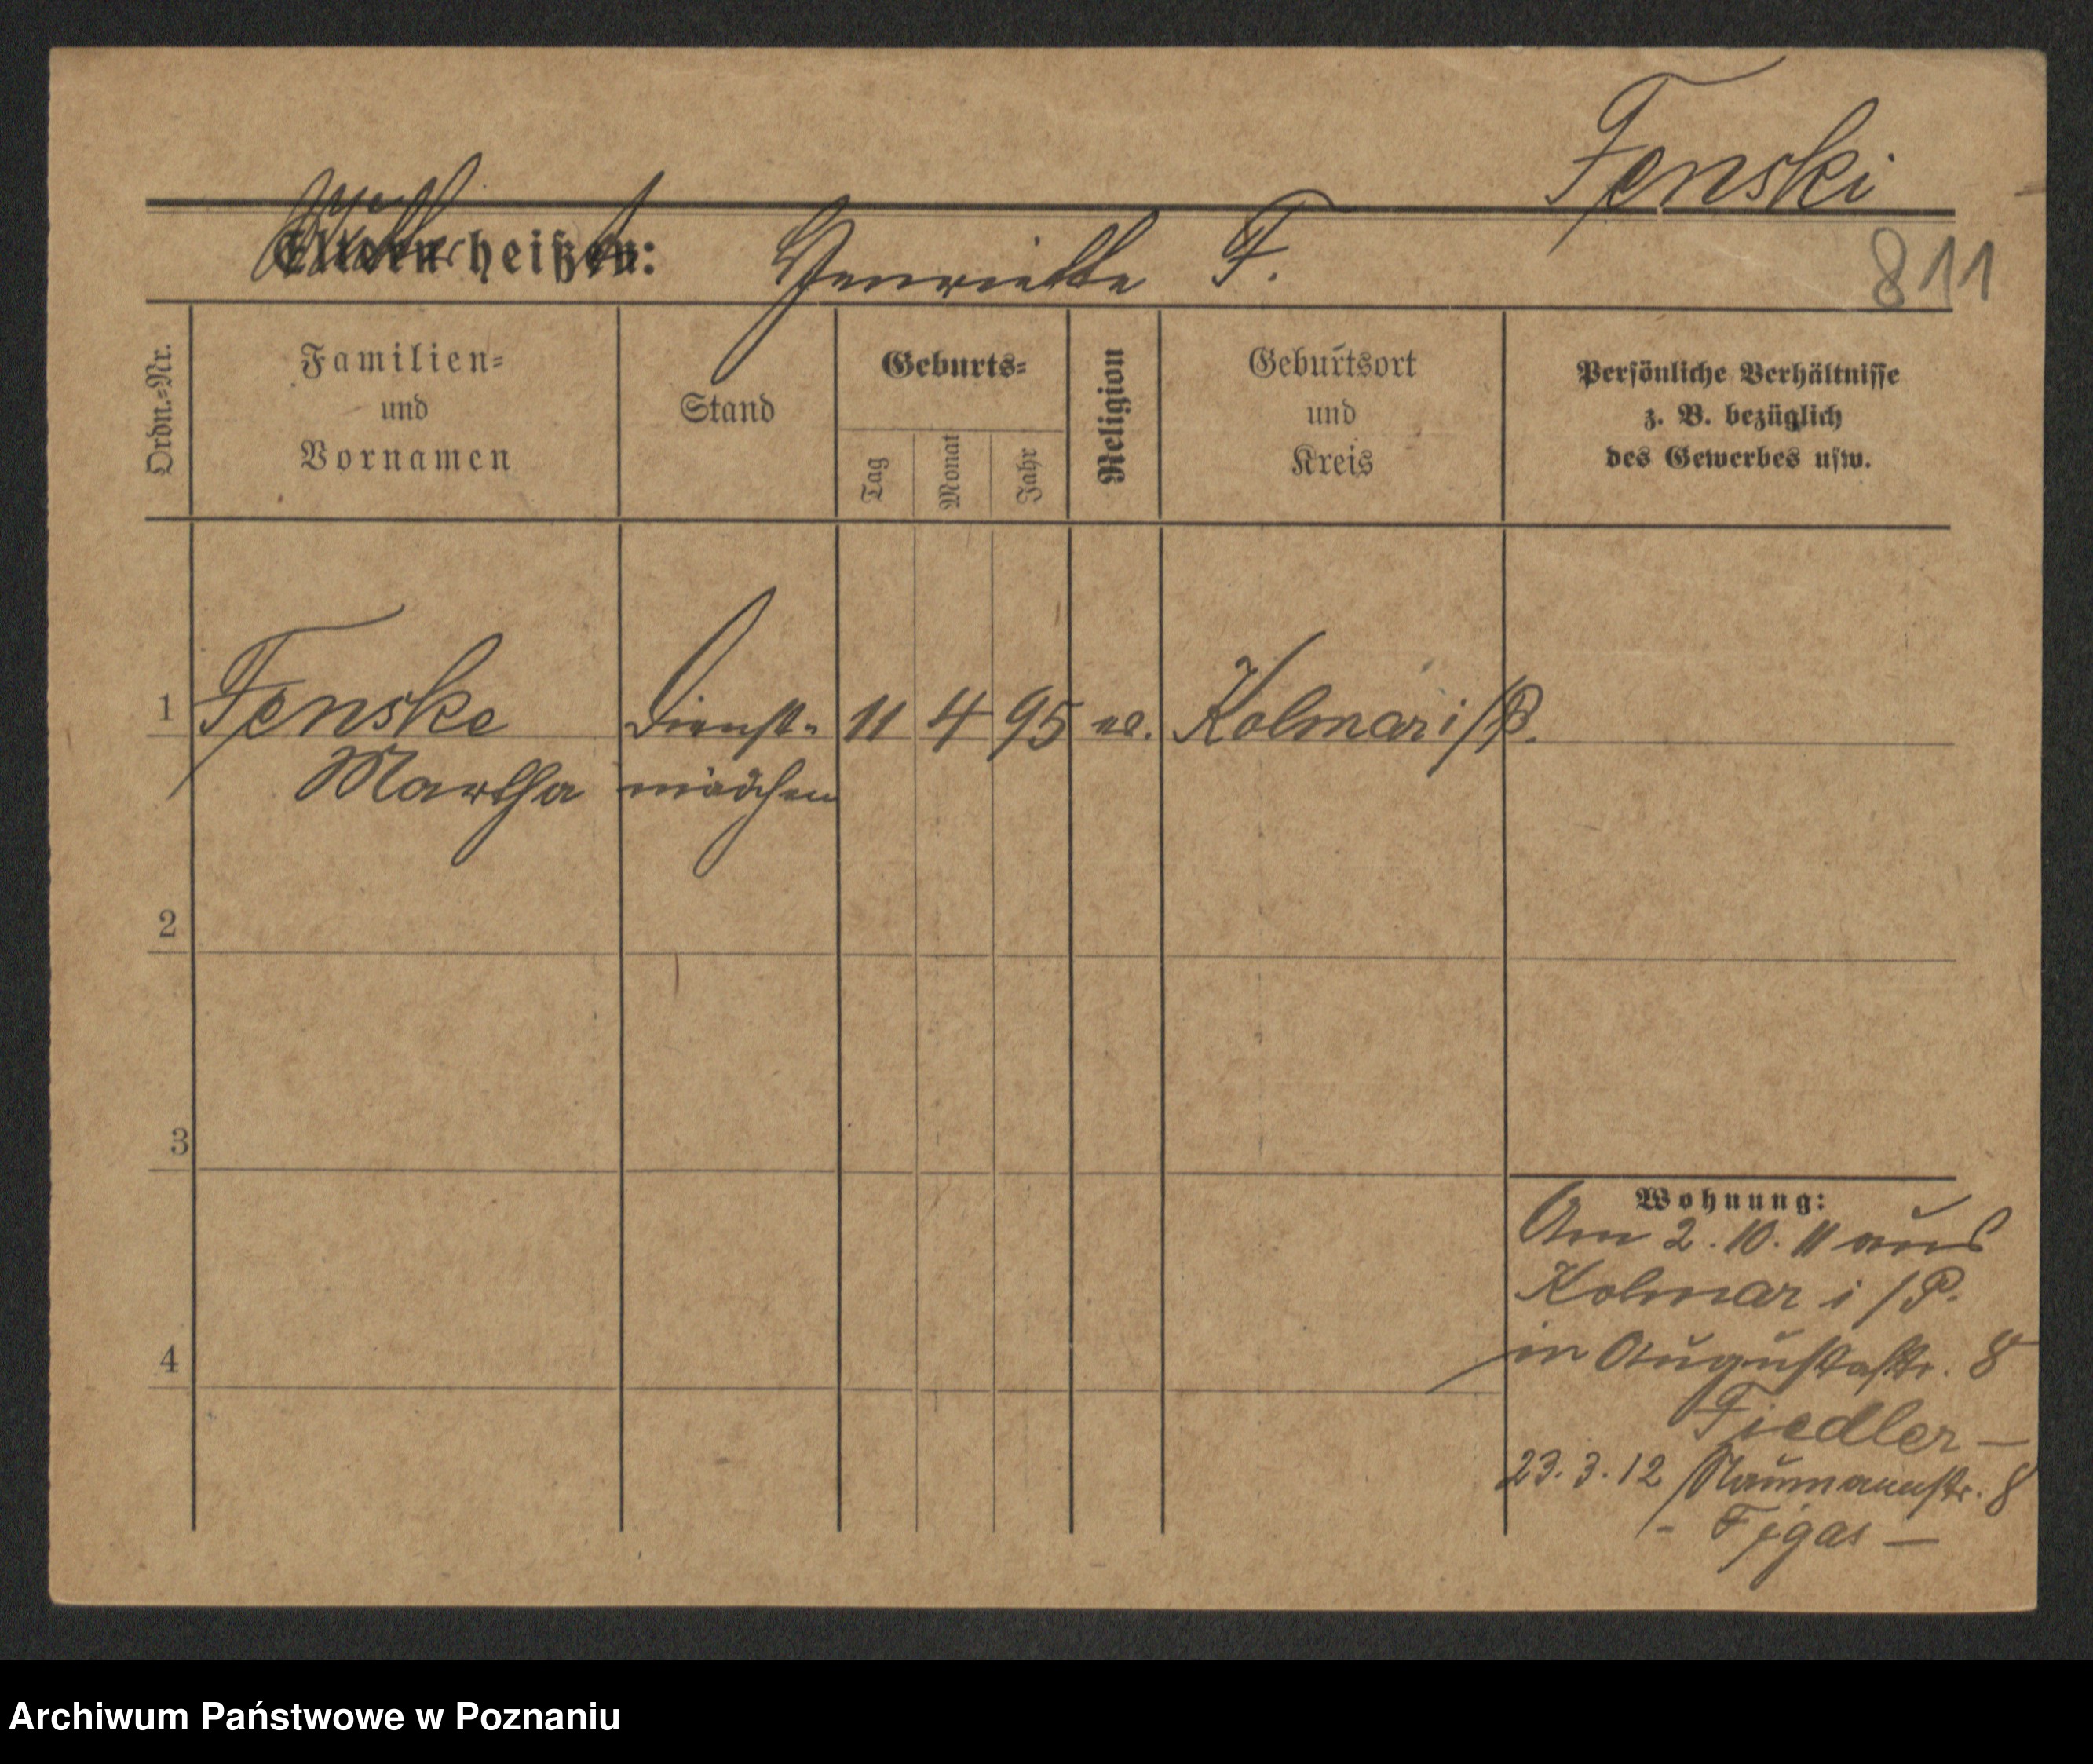 Fenski
Eltern heißen: Henriette F.
811
Ordn.-Nr.
Familien-
und
Vornamen
Stand
Geburts-
Tag
Monat
Jahr
Religion
Geburtsort
und
Kreis
Persönliche Verhältnisse
z. B. bezüglich
des Gewerbes usw.
1 Fenske Dienst- 11 4 95 ev. Kolmar i/P.
Martha mädchen
2
3
4
Wohnung:
Am 2.10.11 aus
Kolmar i/P.
in Augustastr. 8
Fiedler —
23.3.12 Naumannstr. 8
- Figas —
Archiwum Państwowe w Poznaniu